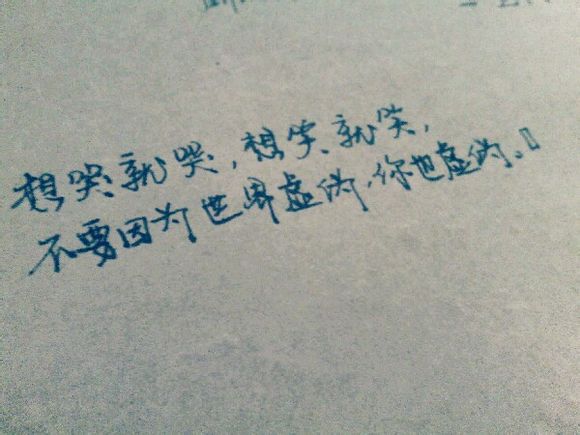 想哭就哭,想笑就笑,
不要因为世界虚伪,你也虚伪、